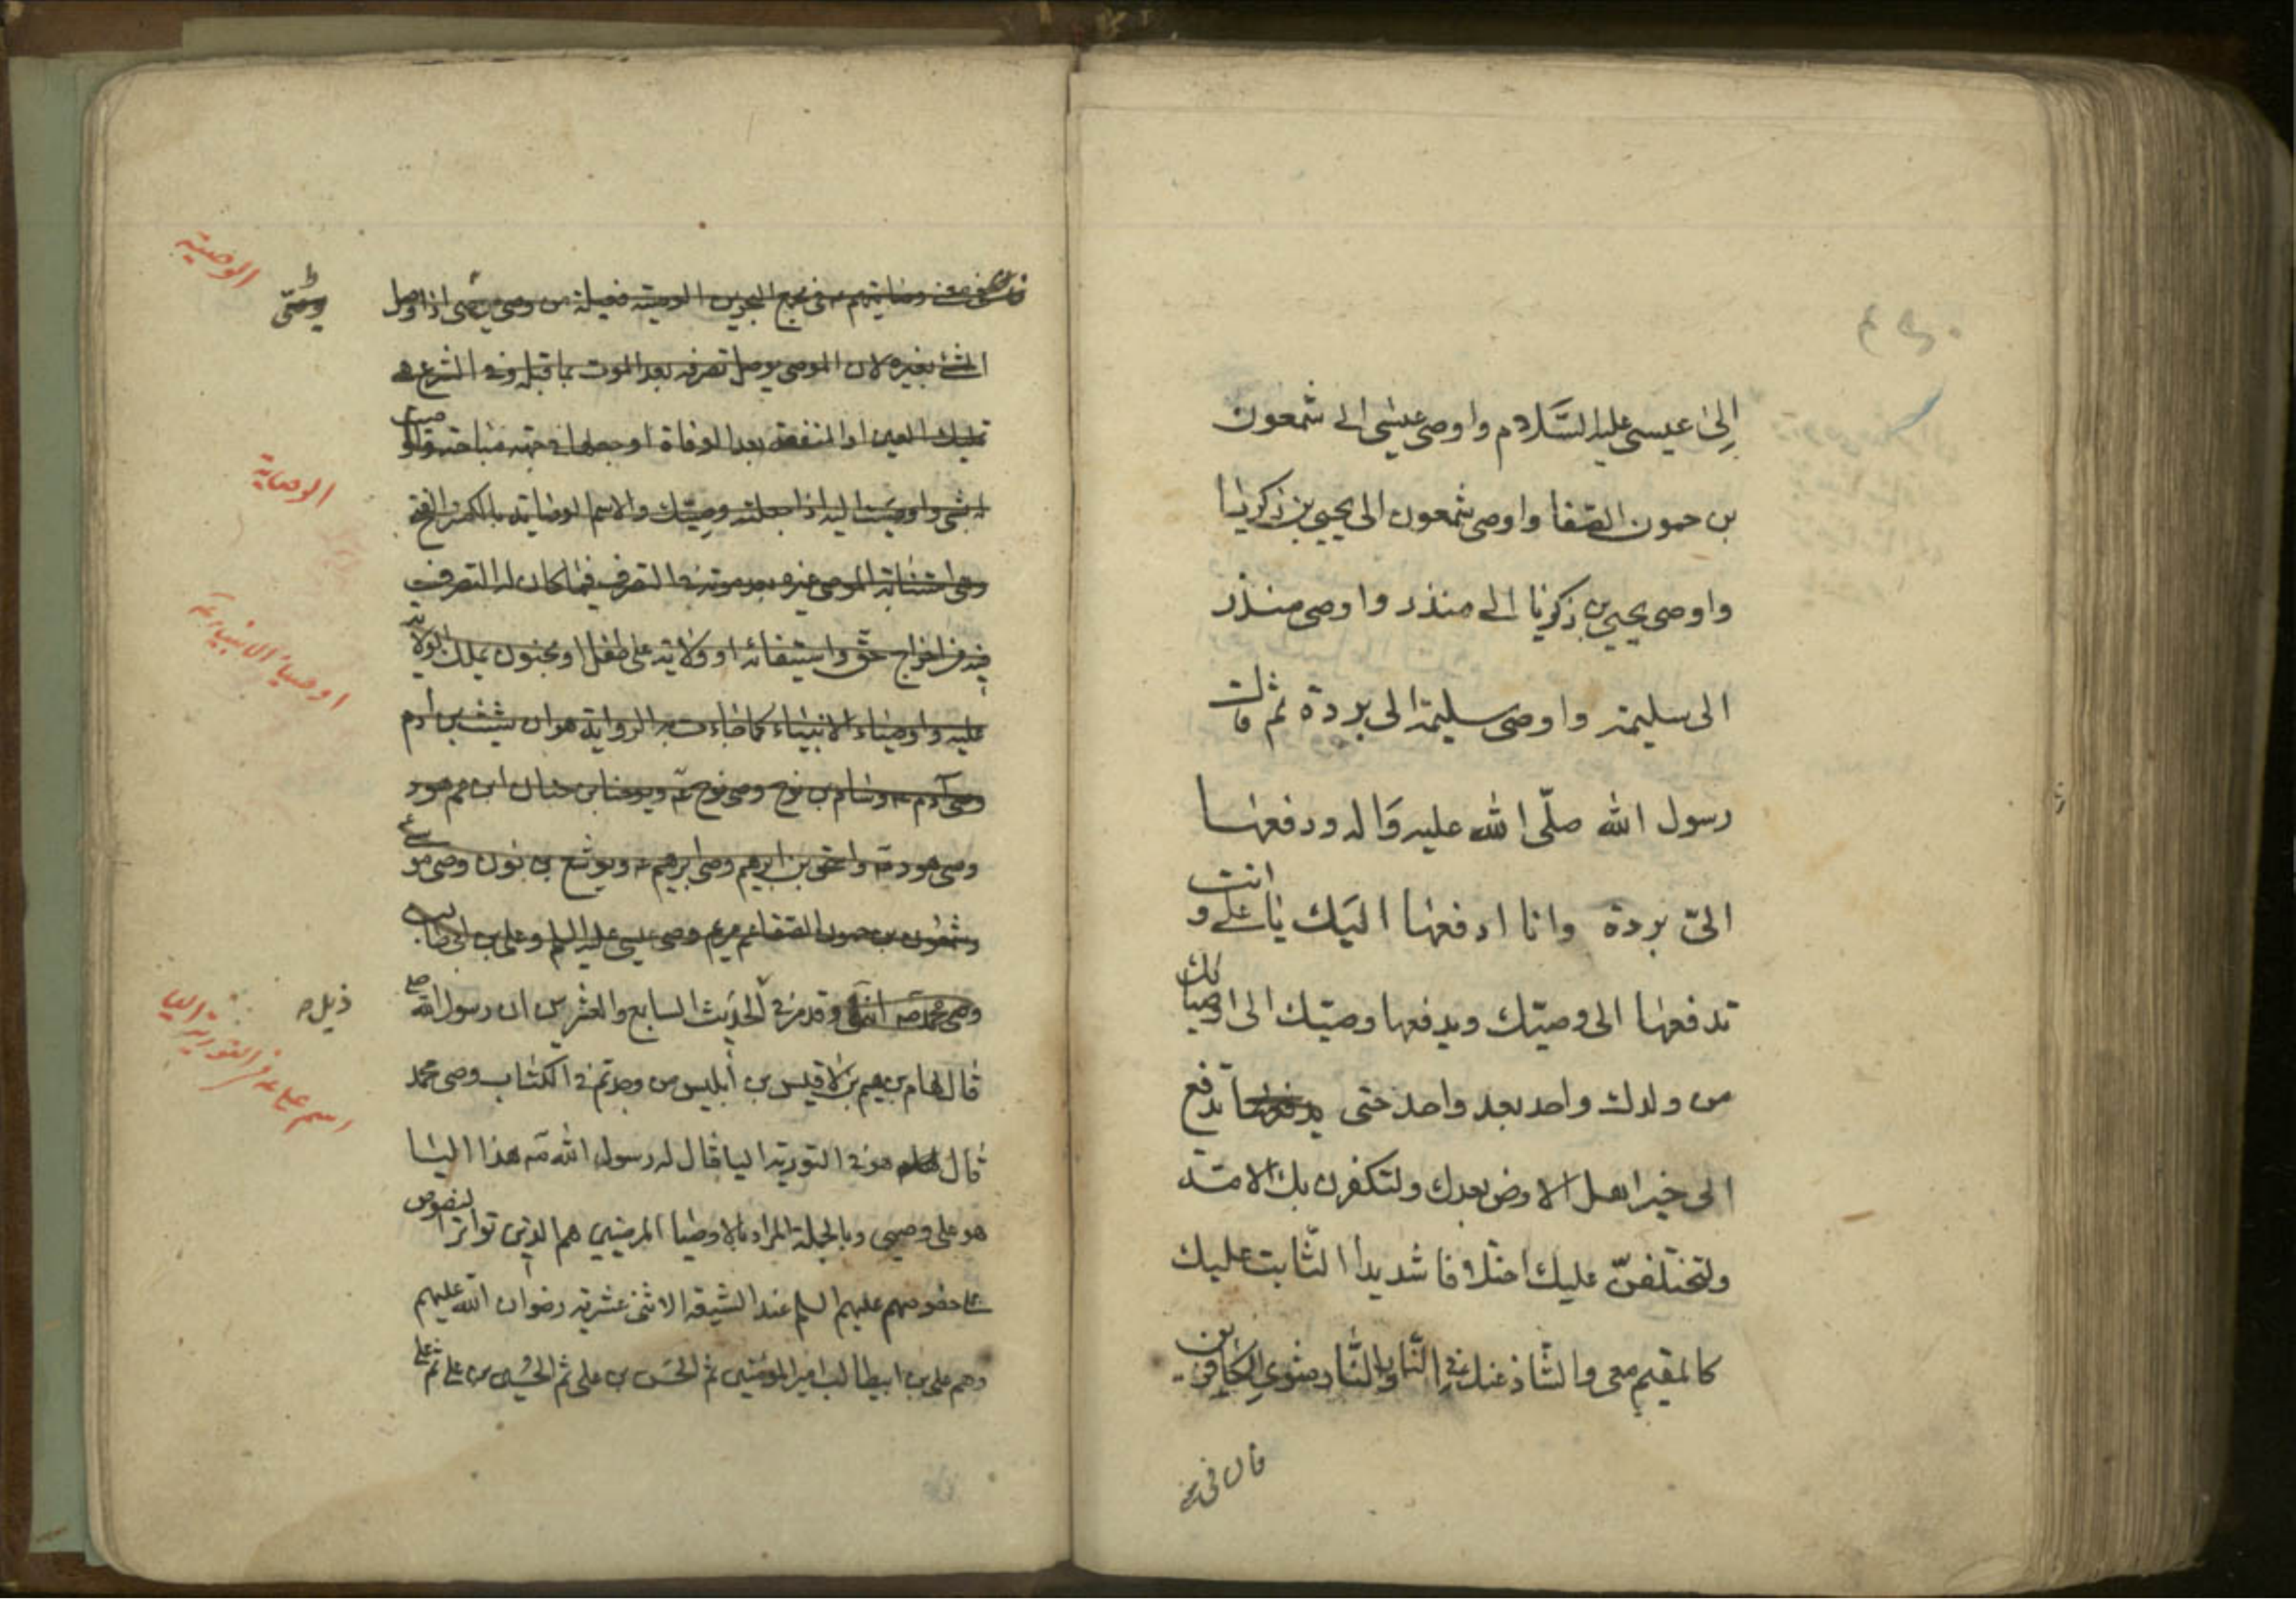 إلى عيسى عليه السَّلام واوصى عيسى الى شمعون
بن حمون الصّفا واوصى شمعون الى يحيى بن زكريا
واوصى يحيى بن زكريا الى منذر واوصى منذر
الى سليمة واوصى سليمة الى بردة ثم قالت
رسول الله صلّى الله عليه وَاله ودفعها
الىّ بردة وانا ادفعها اليَك يا علي و انت
تدفعها الى وصيّك ويدفعها وصيّك الى اوصيائك
من ولدك واحد بعد واحد حتى تدفع
الى خير اهل الارض بعدك ولتكفرن بك الامّة
ولتختلفنّ عليك اختلافا شديدا الثّابت عليك
كالمقيم معى والشّاذ عنك في النّار والنّار مثوى الكافرين
قال في
مجمع البحرين الوصيّة فعيلة من وصى يصى اذا وصل
الشئ بغيره لان الموصى يوصل تصرفه بعد الموت بما قبله وفي الشرع هي
تمليك العين او المنفعة بعد الوفاة او جعلها في جهة مباحة واوصيت
له بشئ واوصيت اليه اذا جعلته وصيّك والاسم الوصاية بالكسر والفتح
وهي استنابة الموصى غيره بعد موته في التصرف فيما كان له التصرف
فيه من اخراج حقّ واستيفائه او ولاية على طفل او مجنون يملك الولاية
عليه واوصياء الانبياء كما جاءت به الرواية هو ان شيث بن آدم
وصى آدم وسام بن نوح وصى نوح ويوحنا بن حنان ابن عم هود
وصى هود واسحق بن ابرهيم وصى ابرهيم ويوشع بن نون وصى موسى
وشمعون بن حمون الصفا عم مريم وصى عيسى عليه السلم وعلى بن ابي طالب
وصى محمد انتهى وقد مرّ في الحديث السابع والعشرين ان رسول الله صلى
قال لهام بن هيم بن لاقيس بن أبليس من وجدتم في الكتاب وصى محمد
قال هو في التورية اليا قال له رسول الله هذا اليا
هو على وصيى وبالجملة المراد بالاوصيا المرضيين هم الذين تواتر النصوص
على خصوصهم عليهم السلم عند الشيعة الاثنى عشرية رضوان الله عليهم
وهم على بن ابيطالب امير المؤمنين ثم الحسَن بن على ثم الحُسين بن على ثم على
الوصية
الوصاية
اوصياء الانبياء
اسم على في التورية اليا